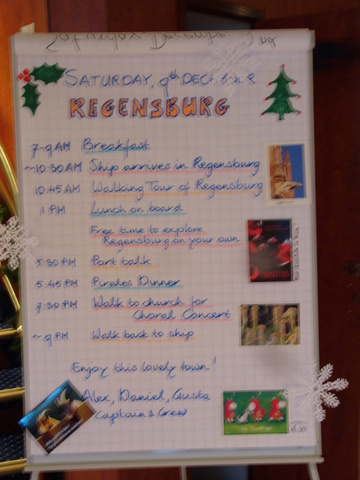 SATURDAY, 9th DECEMBER
REGENSBURG
7-9 AM Breakfast
~10:30 AM Ship arrives in Regensburg
10:45 AM Walking Tour of Regensburg
1 PM Lunch on board
Free time to explore
Regensburg on your own
5:30 PM Port talk
5:45 PM Pirates Dinner
7:30 PM Walk to church for
Choral Concert
~9 PM Walk back to ship
Enjoy this lovely town!
Alex, Daniel, Gusta
Captain & Crew